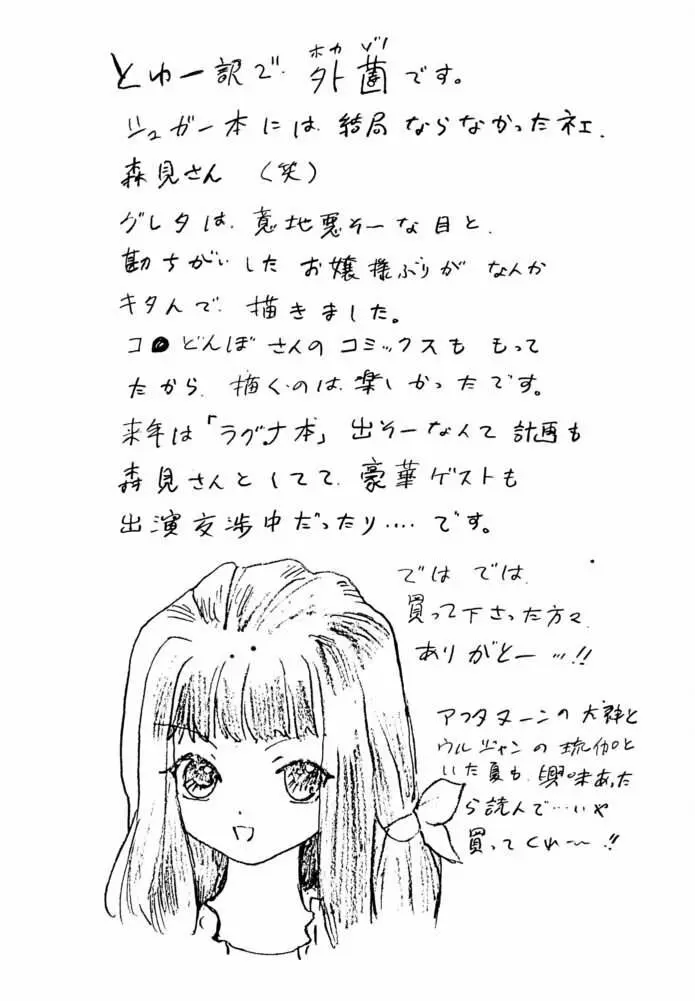 ホカゾノ
とゆー訳で、外薗です。
シュガー本には、結局ならなかったネェ、
森見さん（笑）
グレタは、意地悪そーな目と、
勘ちがいしたお嬢様ぶりがなんか
キタんで、描きました。
コ●どんぼさんのコミックスももって
たから、描くのは楽しかったです。
来年は「ラグナ本」出そーなんて計画も
森見さんとしてて、豪華ゲストも
出演交渉中だったり‥‥です。
ではでは、
買って下さった方々、
ありがとー…!!
アフタヌーンの大神と
ウルジャンの琉伽と
いた夏も、興味あった
ら読んで…いや
買ってくれ〜!!